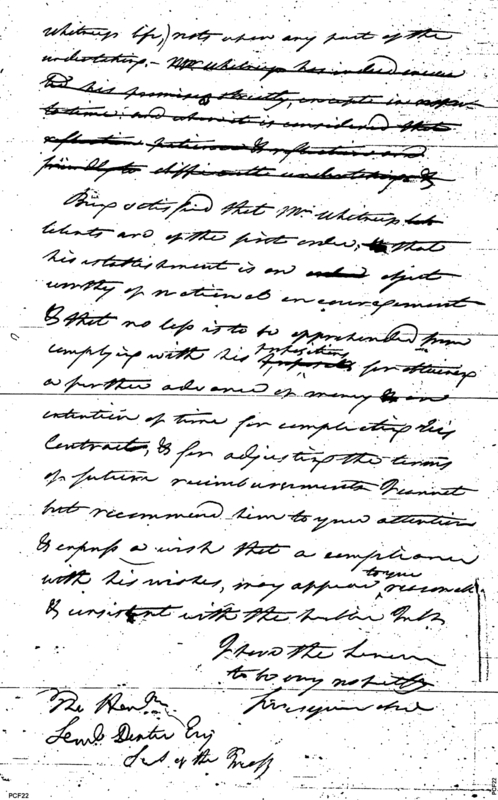 Whitneys life,) nots upon any part of the
undertaking. – Mr Whitney has indeed
his promises strictly, except in
to time; and when it is considered that
patience & reflection and
to undertakings &
Being satisfied that Mr Whitneys
talents are of the first order, that
his establishment is an object
worthy of national encouragement
& that no loss is to be apprehended from
complying with his propositions for
a further advance of money & an
extention of time for completing his
Contract, & for adjusting the terms
of future reimbursements I cannot
but recommend him to your attention
& express a wish that a compliance
with his wishes, may appear to you reasonable
& consistent with the public
I have the honour
to be very respectfy
The Honble
Saml Dexter Esq
Sec of the Treasy
PCF22
PCF22